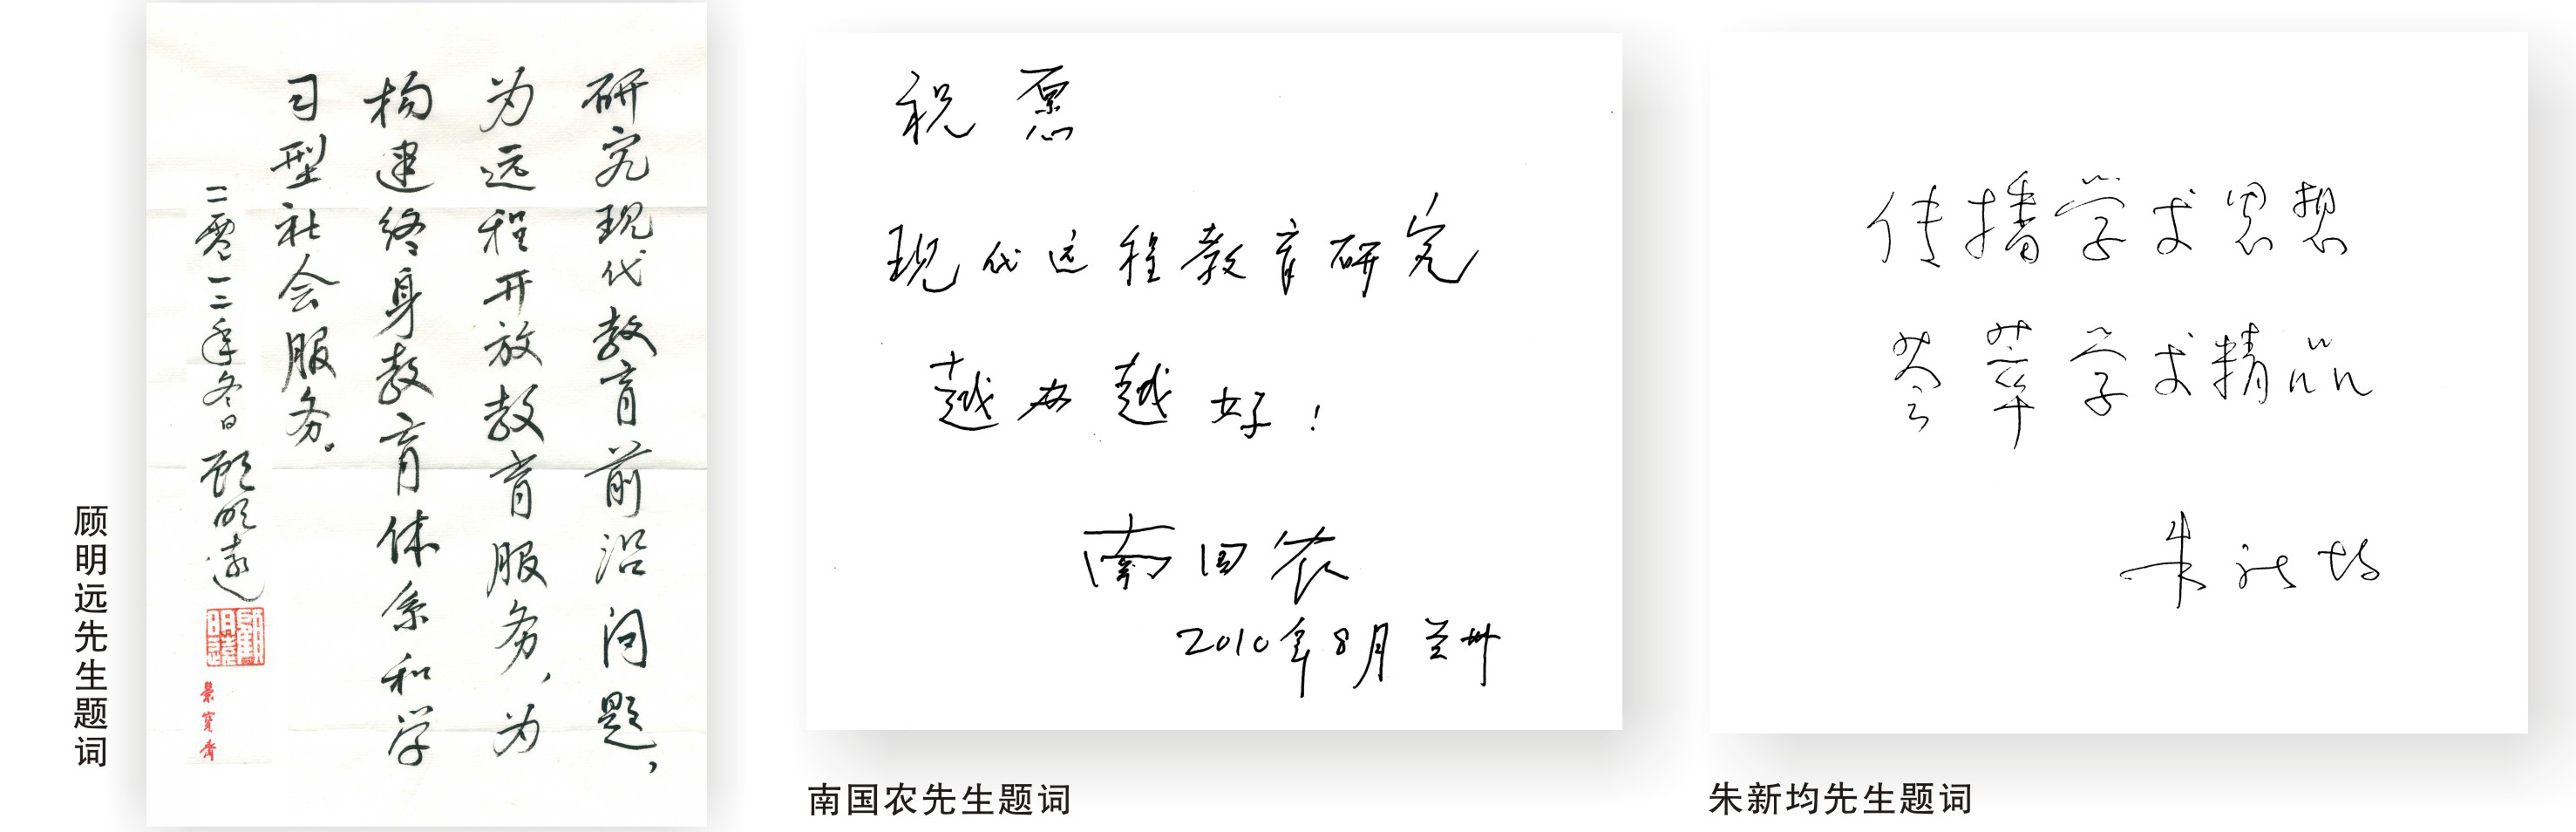 研究现代教育前沿问题，
为远程开放教育服务，为
构建终身教育体系和学
习型社会服务。
二零一二年冬日 顾明远
顧明遠
荣宝斋
顾明远先生题词
祝愿
现代远程教育研究
越办越好！
南国农
2010年8月 兰州
南国农先生题词
传播学术思想
荟萃学术精品
朱新均
朱新均先生题词